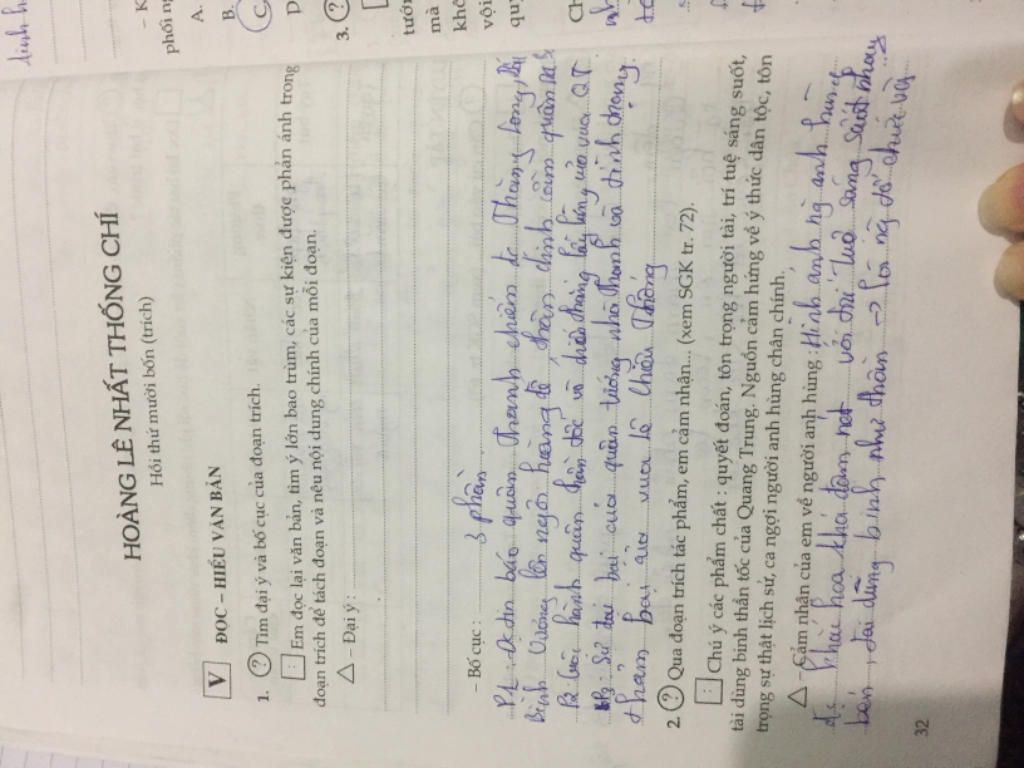 HOÀNG LÊ NHẤT THỐNG CHÍ
Hồi thứ mười bốn (trích)
V ĐỌC – HIỂU VĂN BẢN
1. ? Tìm đại ý và bố cục của đoạn trích.
Em đọc lại văn bản, tìm ý lớn bao trùm, các sự kiện được phản ánh trong
đoạn trích để tách đoạn và nêu nội dung chính của mỗi đoạn.
– Đại ý :
– Bố cục : 3 phần.
P1: Đc tin báo quân Thanh chiếm đc Thăng Long, Bắc
Bình Vương lên ngôi hoàng đế, thân chinh cầm quân ra
P2: Cuộc hành quân thần tốc và chiến thắng lẫy lừng của vua QT
P3: Sự đại bại của quân tướng nhà Thanh và tình trạng
thảm bại của vua Lê Chiêu Thống
2. ? Qua đoạn trích tác phẩm, em cảm nhận... (xem SGK tr. 72).
Chú ý các phẩm chất : quyết đoán, tôn trọng người tài, trí tuệ sáng suốt,
tài dùng binh thần tốc của Quang Trung. Nguồn cảm hứng về ý thức dân tộc, tôn
trọng sự thật lịch sử, ca ngợi người anh hùng chân chính.
– Cảm nhận của em về người anh hùng : Hình ảnh ng anh hùng
đc khắc hoạ khá đậm nét với trí tuệ sáng suốt nhạy
bén, tài dùng binh như thần -> là ng tổ chức và
32
3. ?
A.
B.
C.
D
phối